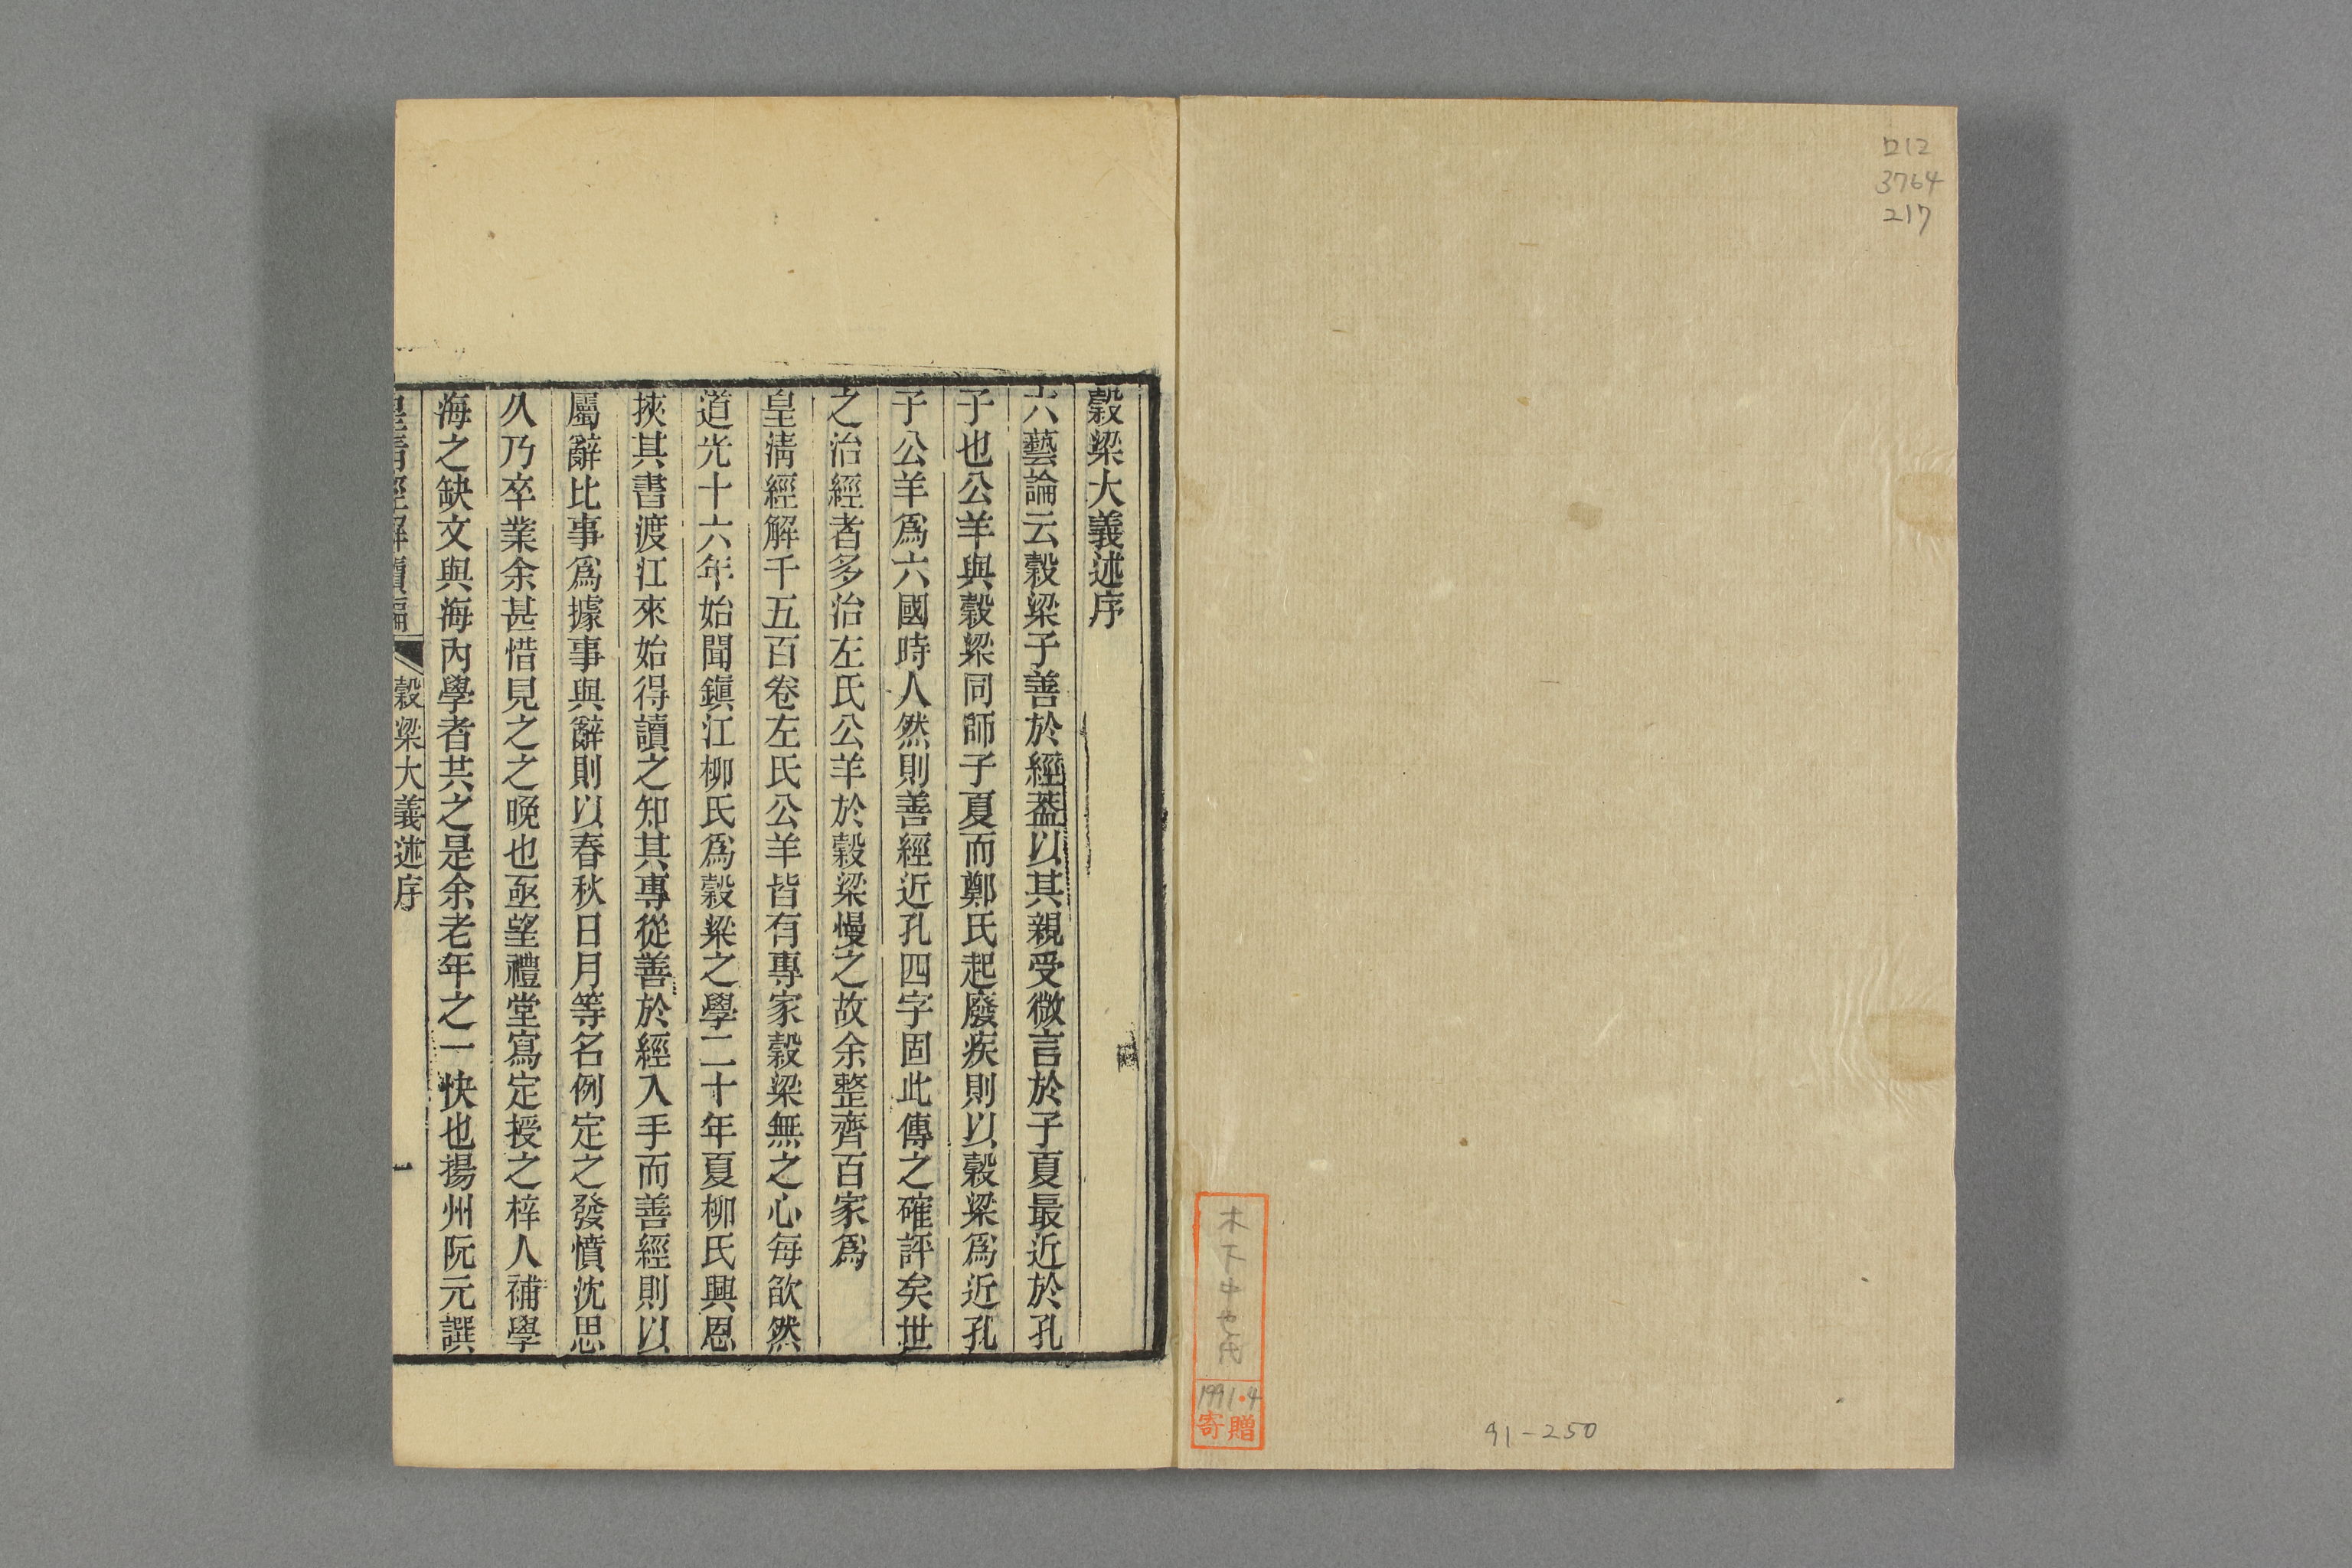 ロ12
3764
217
1991.4
寄贈
91-250
穀梁大義述序
六藝論云穀梁子善於經葢以其親受微言於子夏最近於孔
子也公羊與穀梁同師子夏而鄭氏起廢疾則以穀梁爲近孔
子公羊爲六國時人然則善經近孔四字固此傳之確評矣世
之治經者多治左氏公羊於穀梁慢之故余整齊百家爲
皇淸經解千五百卷左氏公羊皆有專家穀梁無之心每欿然
道光十六年始聞鎭江柳氏爲穀梁之學二十年夏柳氏興恩
挾其書渡江來始得讀之知其專從善於經入手而善經則以
屬辭比事爲據事與辭則以春秋日月等名例定之發憤沈思
久乃卒業余甚惜見之之晚也亟望禮堂寫定授之梓人補學
海之缺文與海內學者共之是余老年之一快也揚州阮元譔
皇淸經解續編
穀梁大義述序
一